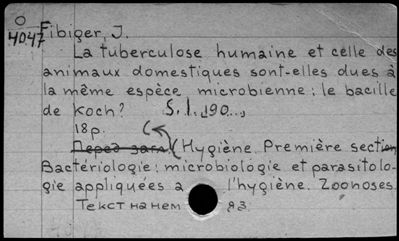 O
4047
Fibiger, J.
La tuberculose humaine et celle des
animaux domestiques sont-elles dues à
la même espèce microbienne: le bacille
de Koch? S.l., 190..,
18p.
Перед загл. (Hygiène. Première section
Bactériologie: microbiologie et parasitolo-
gie appliquées a l'hygiène. Zoonoses.
Текст на нем яз.